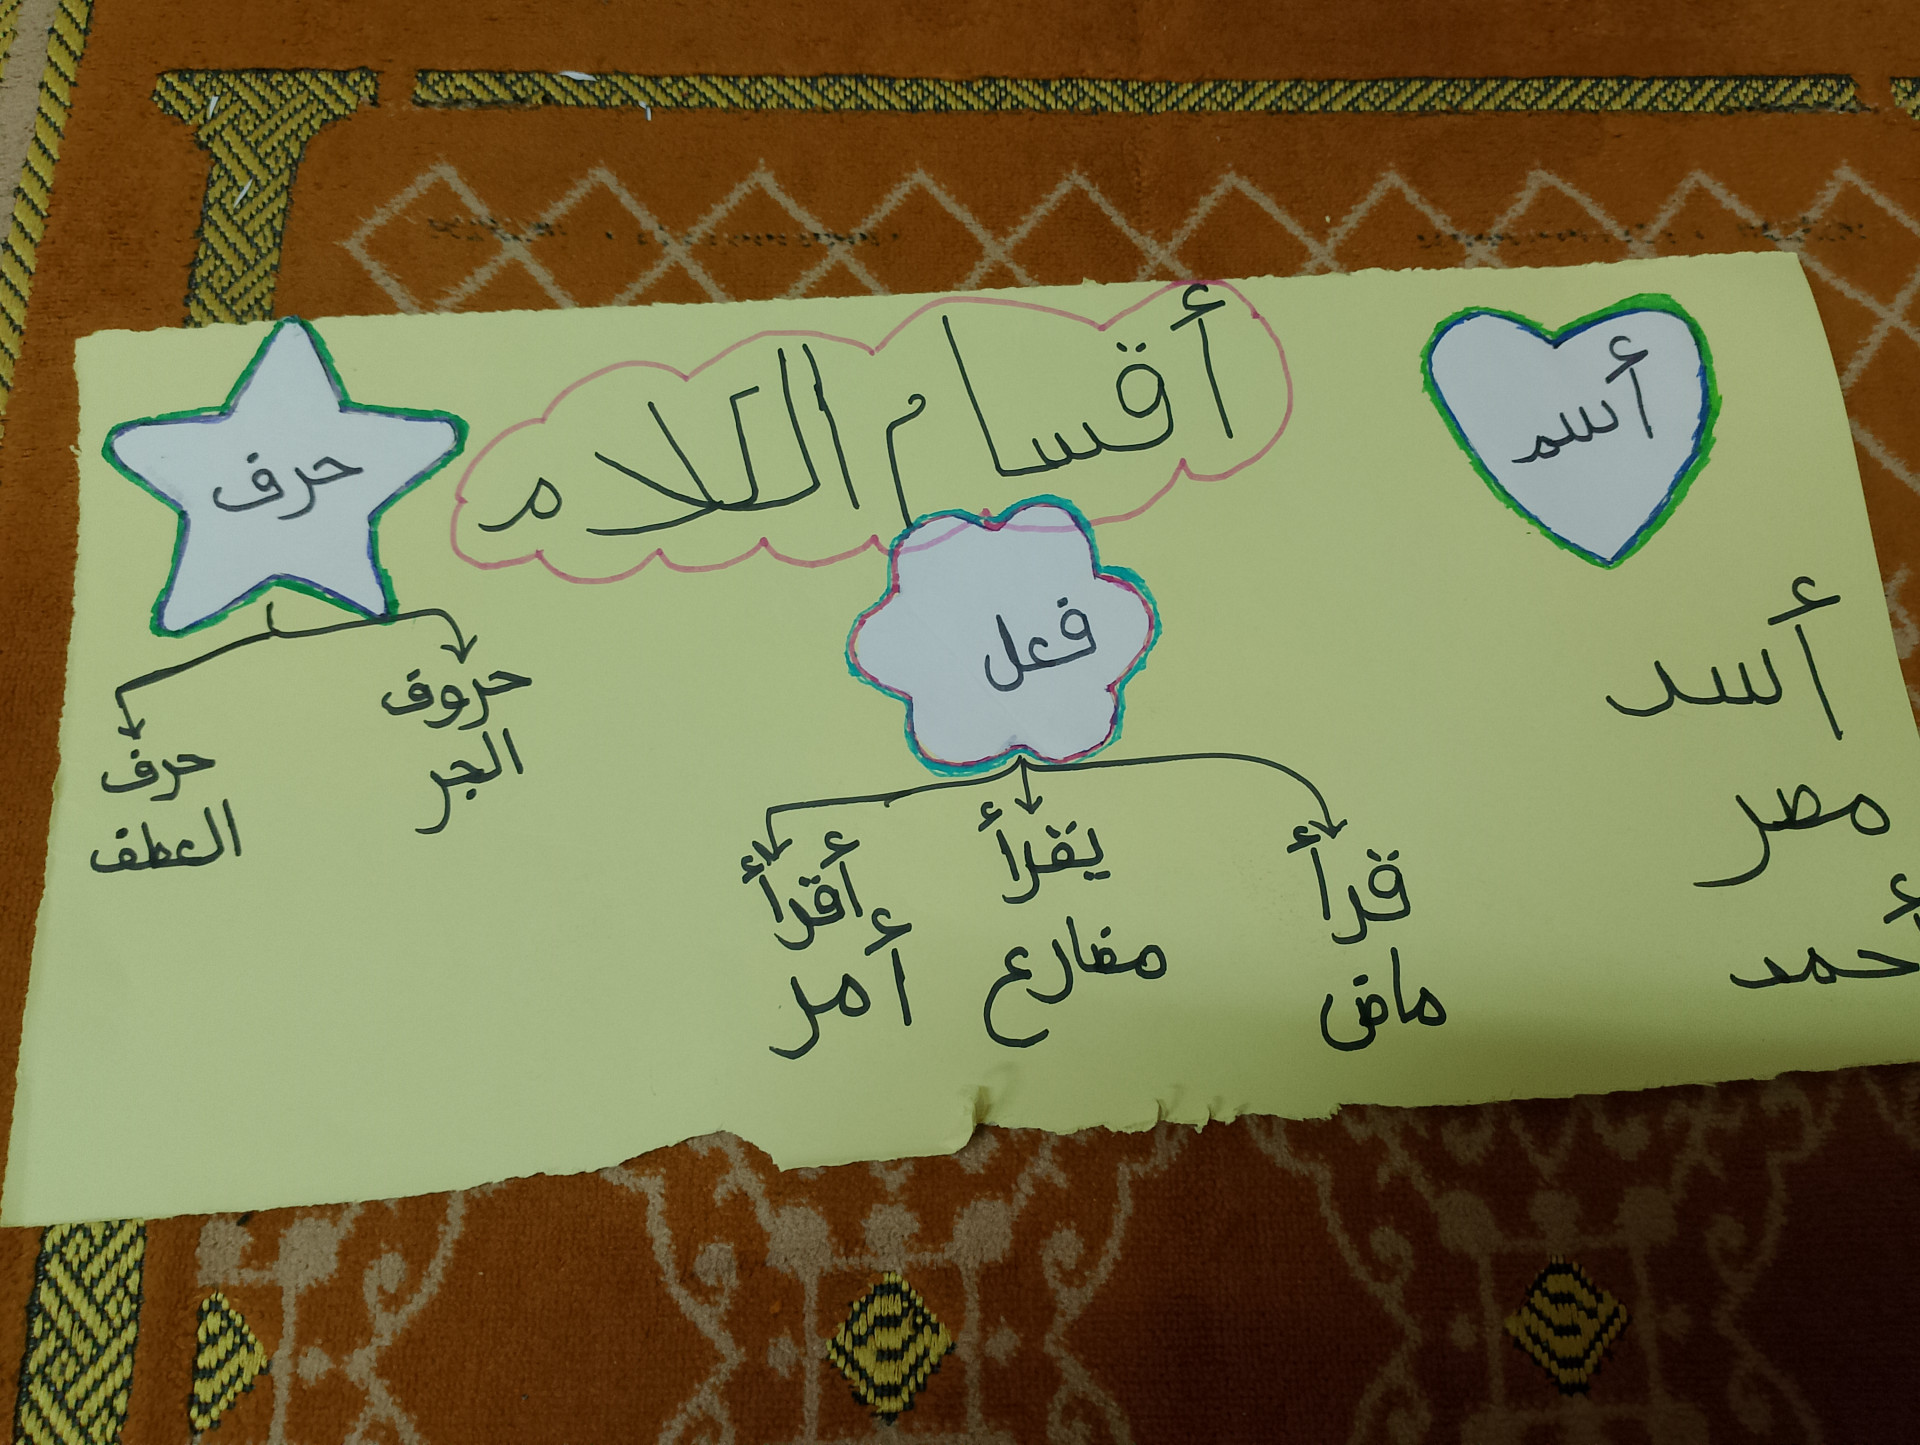 أقسام الكلام
أسم
أسد
مصر
أحمد
فعل
قرأ
ماض
يقرأ
مضارع
أقرأ
أمر
حرف
حروف
الجر
حرف
العطف